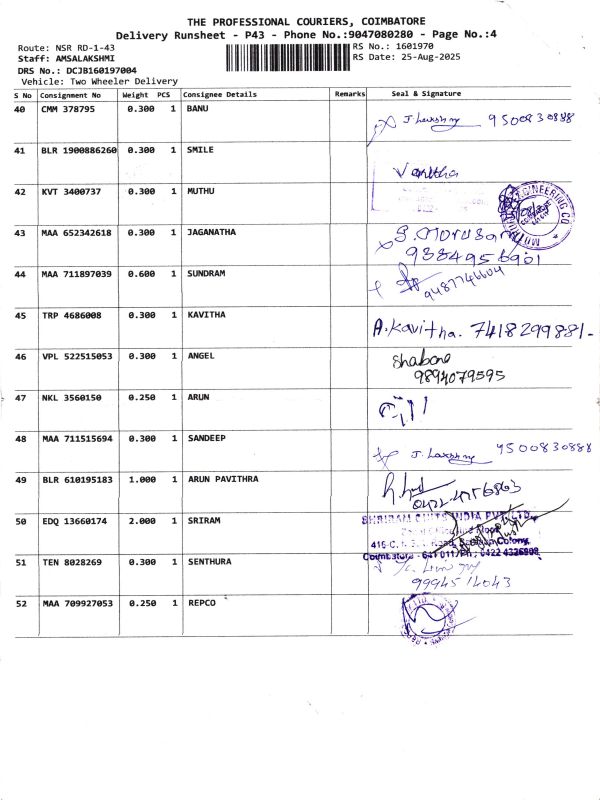 THE PROFESSIONAL COURIERS, COIMBATORE
Delivery Runsheet - P43 - Phone No.:9047080280 - Page No.:4
Route: NSR RD-1-43 RS No.: 1601970
Staff: AMSALAKSHMI RS Date: 25-Aug-2025
DRS No.: DCJB160197004
Vehicle: Two Wheeler Delivery
S No Consignment No Weight PCS Consignee Details Remarks Seal & Signature
40 CMM 378795 0.300 1 BANU
J. Lakshmy 9500830888
41 BLR 1900886260 0.300 1 SMILE
Vanitha
42 KVT 3400737 0.300 1 MUTHU
43 MAA 652342618 0.300 1 JAGANATHA
9384956901
44 MAA 711897039 0.600 1 SUNDRAM
9487746604
45 TRP 4686008 0.300 1 KAVITHA
A. Kavitha. 7418299881-
46 VPL 522515053 0.300 1 ANGEL
9894079595
47 NKL 3560150 0.250 1 ARUN
48 MAA 711515694 0.300 1 SANDEEP
J. Lakshmy 9500830888
49 BLR 610195183 1.000 1 ARUN PAVITHRA
50 EDQ 13660174 2.000 1 SRIRAM
SHRIRAM CHITS INDIA PVT LTD.
Coimbatore - 641 011. PH: 0422 4326808
51 TEN 8028269 0.300 1 SENTHURA
9994514043
52 MAA 709927053 0.250 1 REPCO